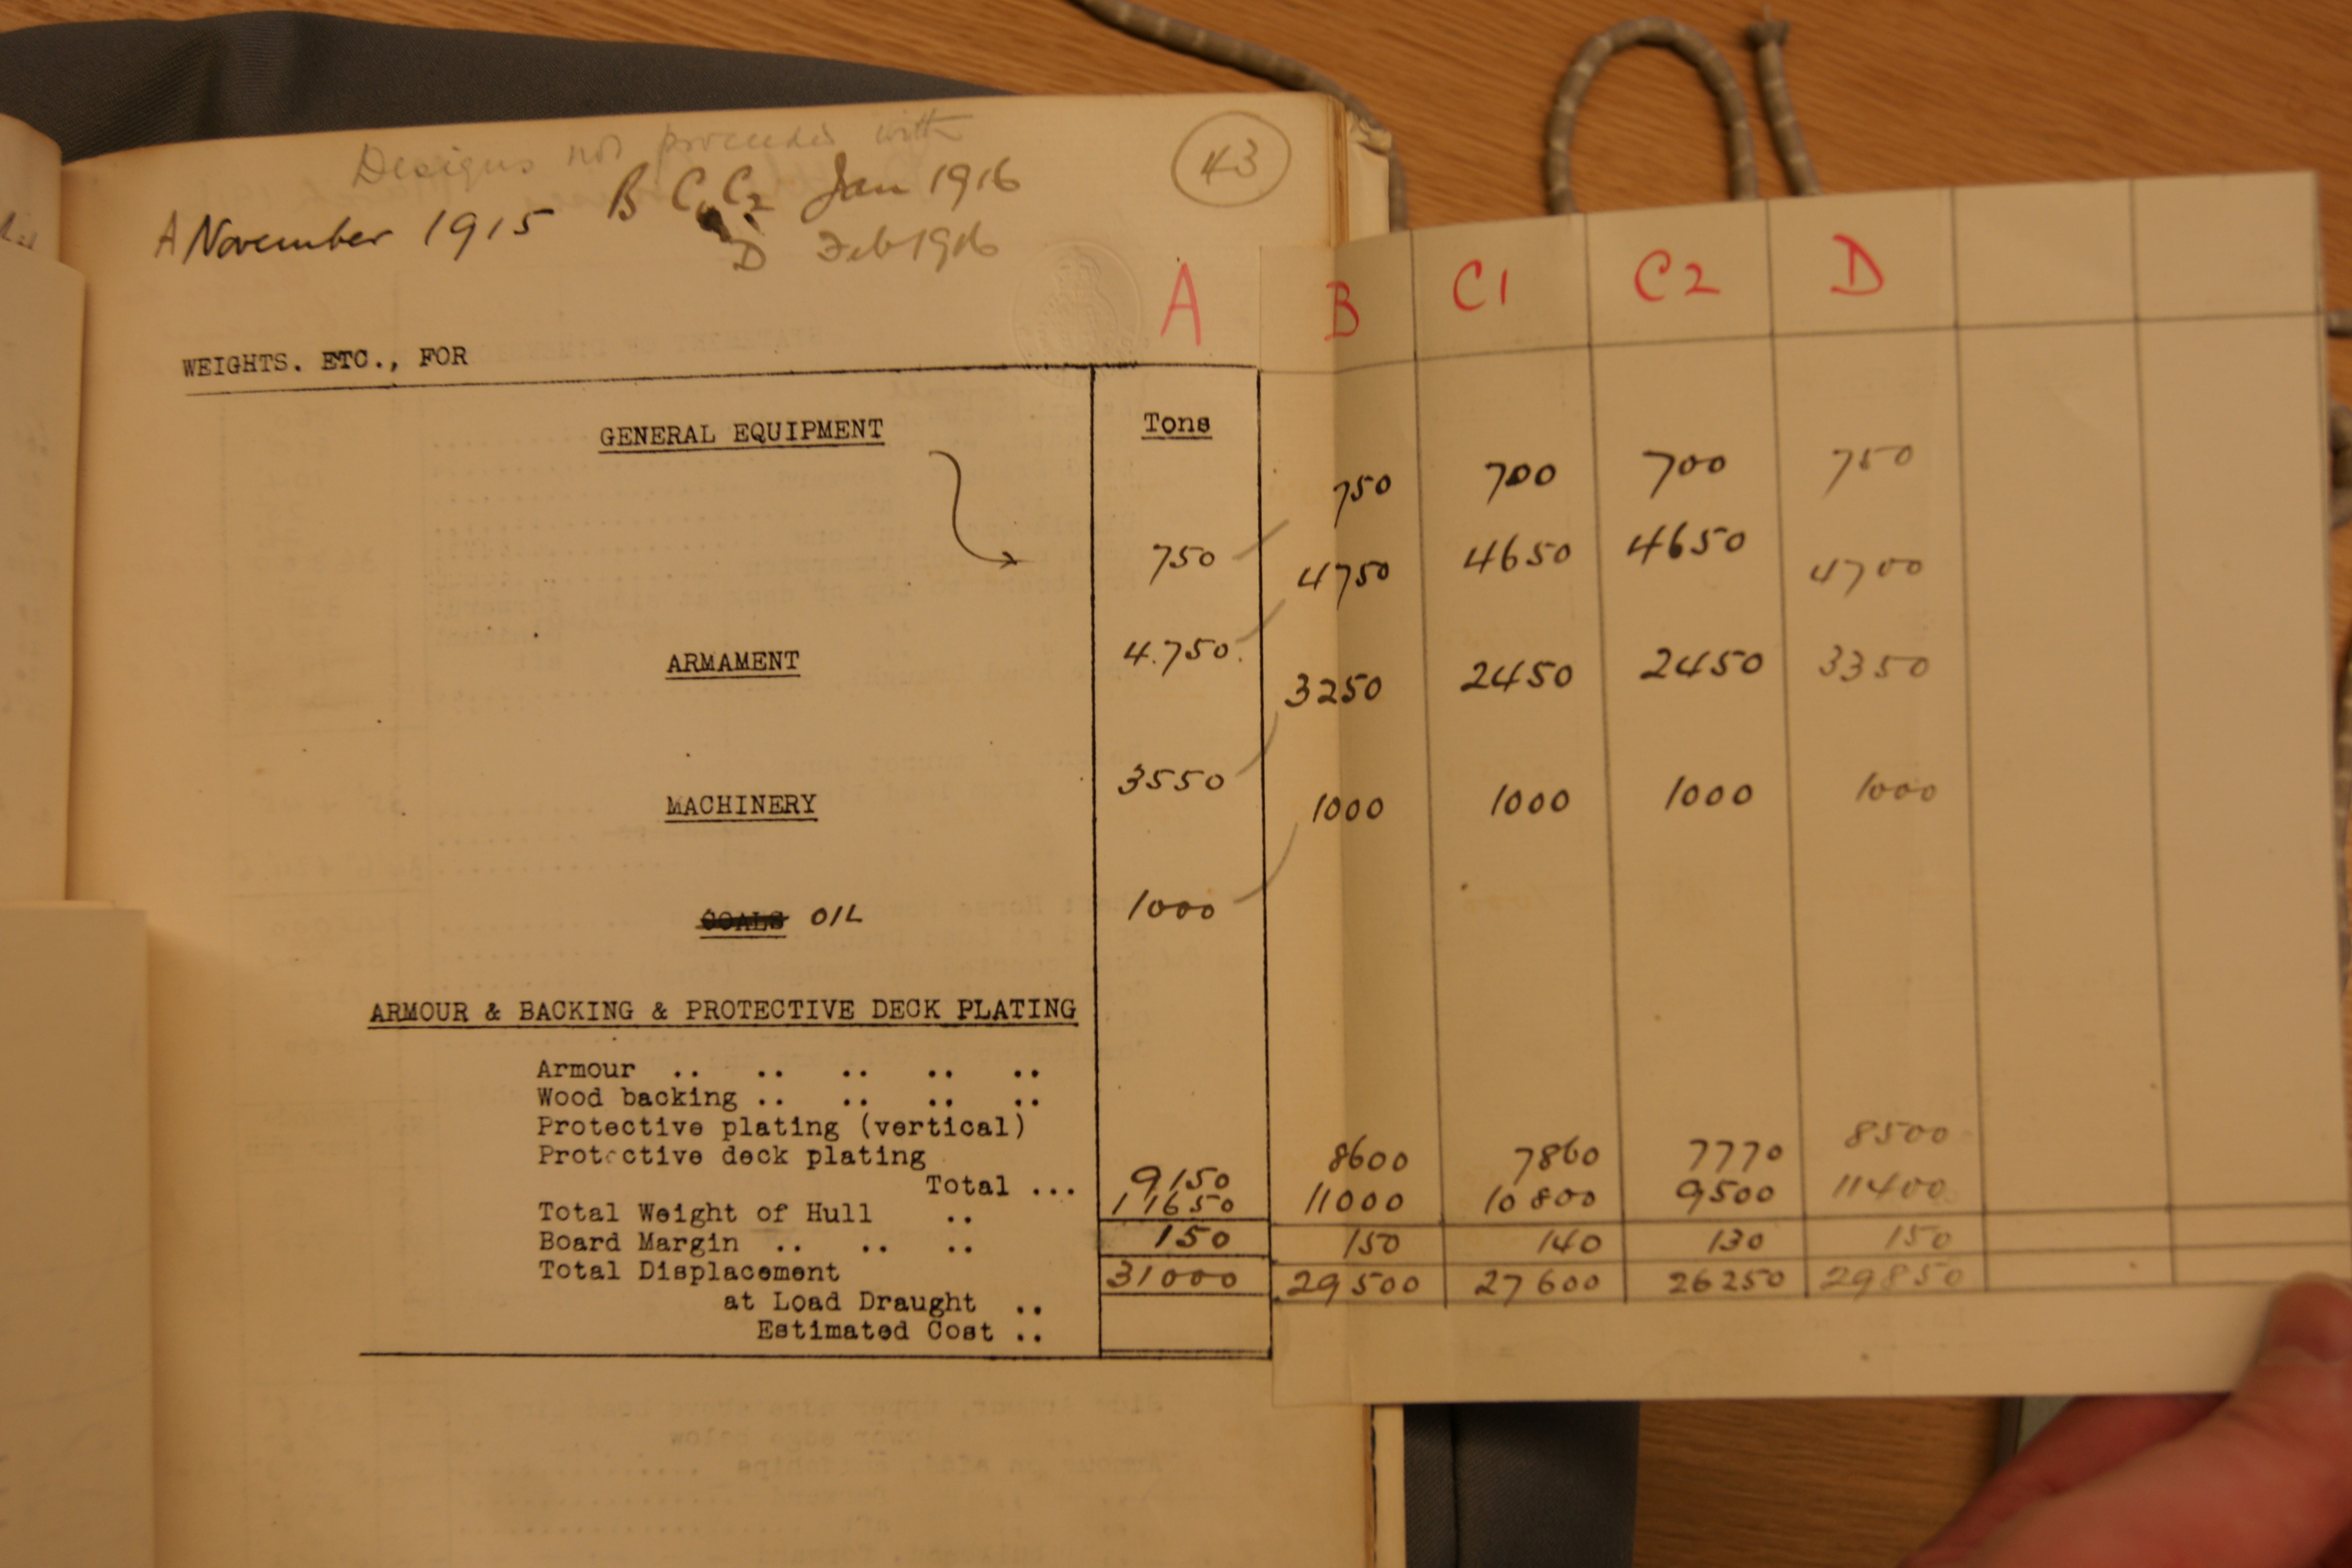 Designs not proceeded with
A November 1915 B C1 C2 Jan 1916
D Feb 1916
43
A B C1 C2 D
WEIGHTS. ETC., FOR
GENERAL EQUIPMENT Tons
750 750 700 700 750
4.750. 4750 4650 4650 4700
ARMAMENT
3550 3250 2450 2450 3350
MACHINERY
1000 1000 1000 1000 1000
COALS OIL
ARMOUR & BACKING & PROTECTIVE DECK PLATING
Armour .. .. .. .. ..
Wood backing .. .. .. ..
Protective plating (vertical)
Protective deck plating
Total ... 9150 8600 7860 7770 8500
Total Weight of Hull .. 11650 11000 10800 9500 11400
Board Margin .. .. .. 150 150 140 130 150
Total Displacement 31000 29500 27600 26250 29850
at Load Draught ..
Estimated Cost ..